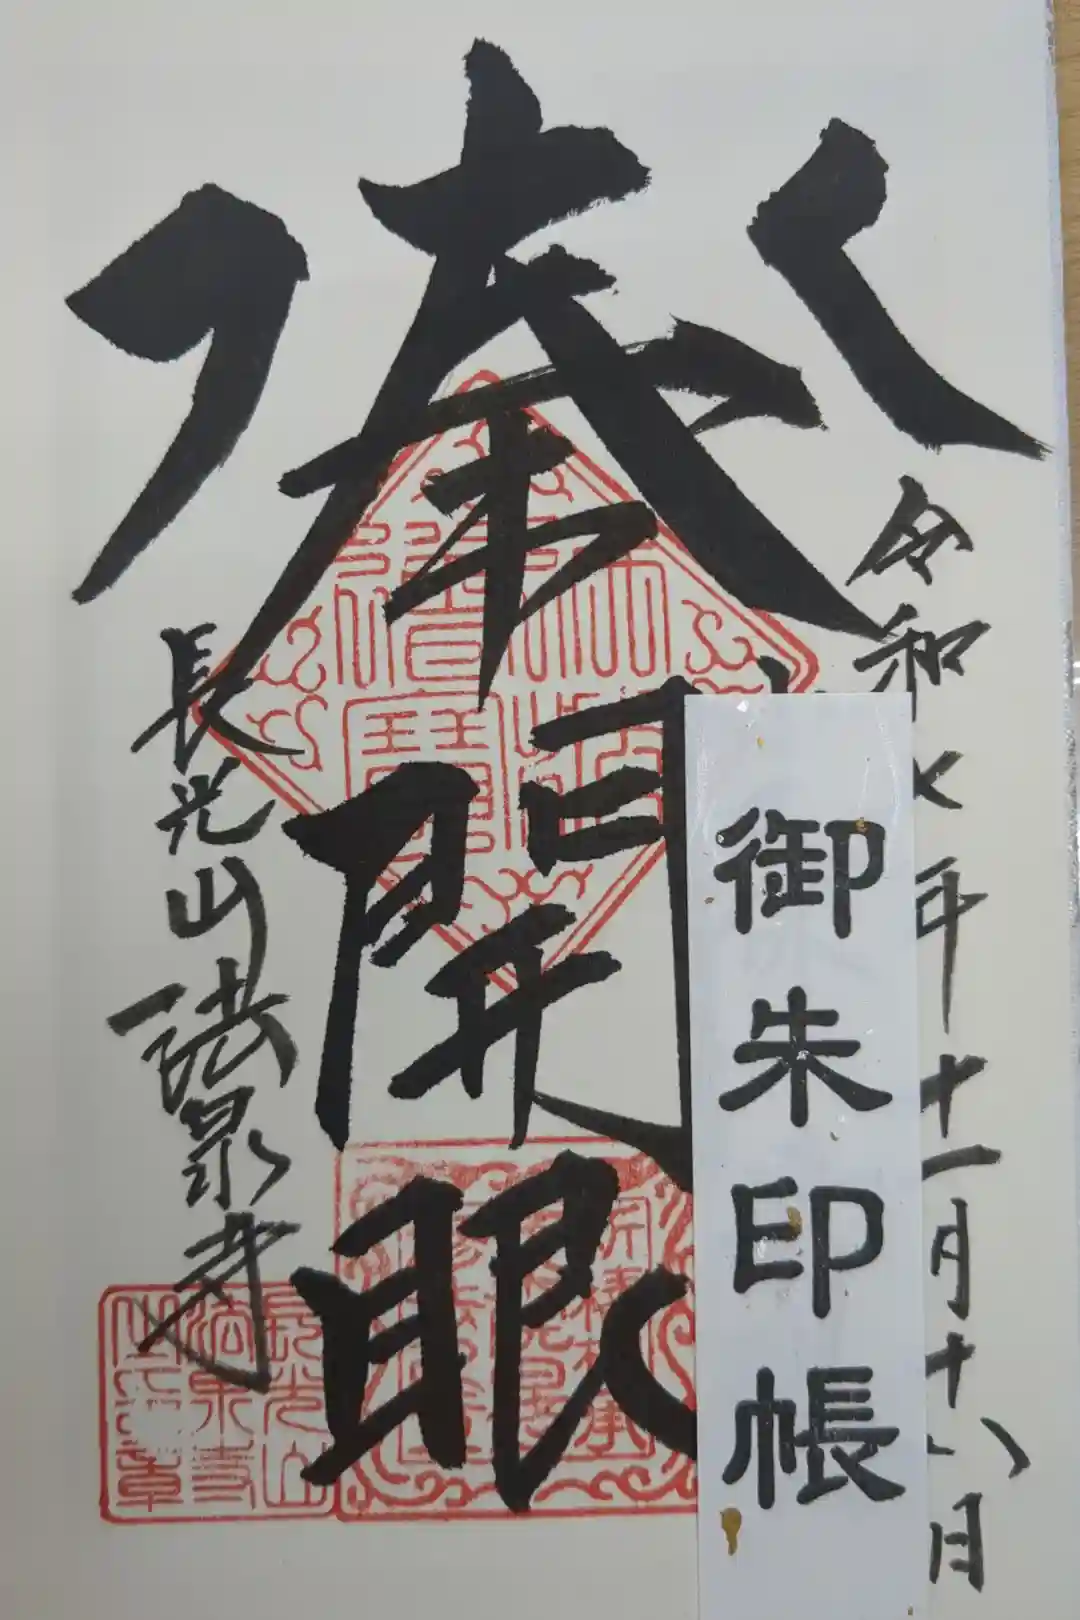 令和七年十一月十八日
奉開眼
長光山 法泉寺
御朱印帳
佛法僧寶